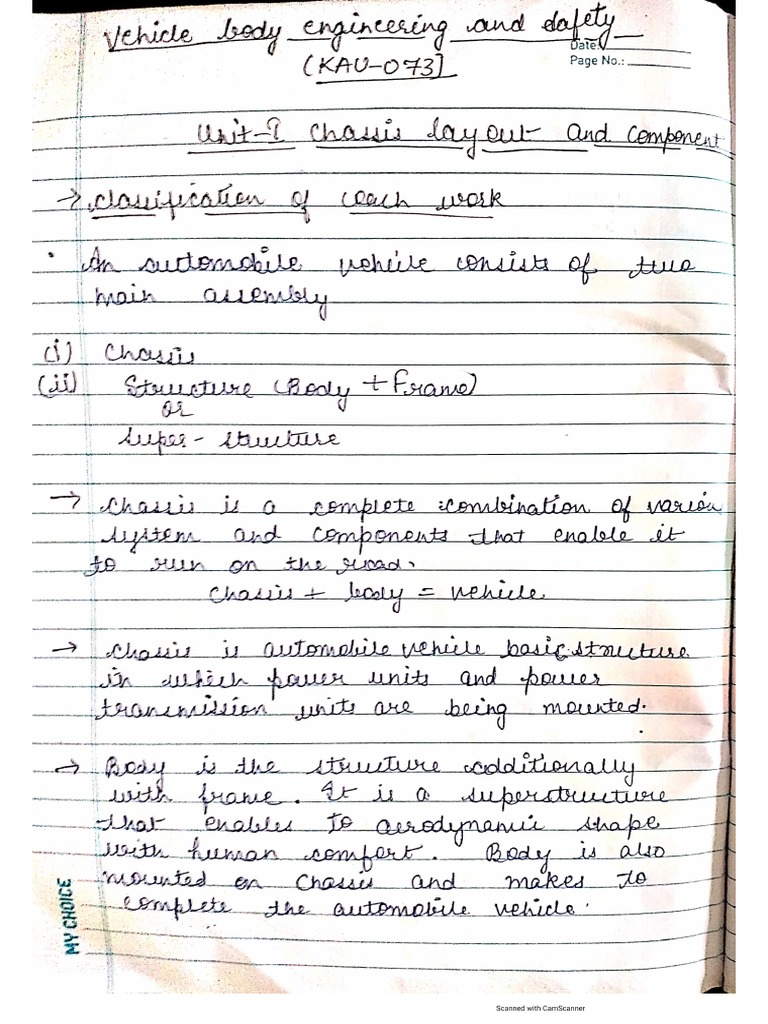 Vehicle body engineering and safety
Date:
(KAU-073)
Page No.:
Unit-I Chassis layout and component
→ classification of coach work
• An automobile vehicle consists of two
main assembly
(i) Chassis
(ii) Structure (Body + Frame)
or
super-structure
→ Chassis is a complete combination of various
system and components that enable it
to run on the road.
Chassis + body = vehicle
→ Chassis is automobile vehicle basic structure
in which power units and power
transmission units are being mounted.
→ Body is the structure additionally
with frame. It is a superstructure
that enables to aerodynamic shape
with human comfort. Body is also
mounted on chassis and makes to
complete the automobile vehicle.
MY CHOICE
Scanned with CamScanner